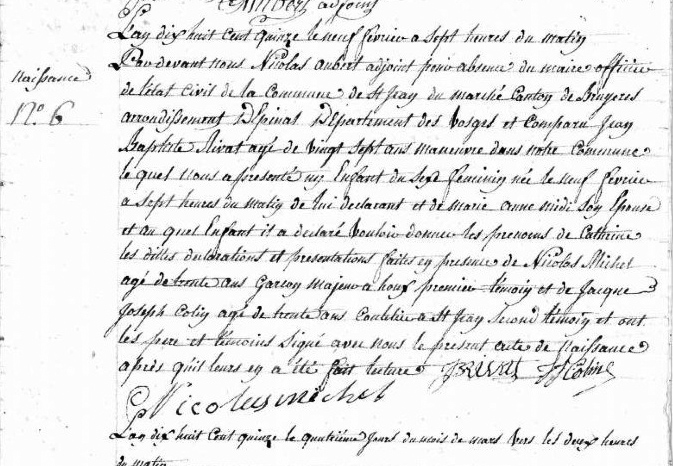 adjoint
L'an dix huit cent quinze le neuf fevrier a sept heures du matin
Naissance
Par devant nous Nicolas aubert adjoint pour absence du maire officier
de l'etat civil de la Commune de St Jean du marché Canton de Bruyeres
N.º 6
arrondissement D'Epinal Département des Vosges et Comparu Jean
Baptiste Rivat agé de vingt sept ans maneuvre dans notre Commune
lequel nous a presenté un Enfant du sexe feminin née le neuf fevrier
a sept heures du matin de lui declarant et de marie anne midi son Epouse
et au quel Enfant il a declaré vouloir donner les prenoms de Catherine
les dittes declarations et presentations faites en presence de Nicolas Michel
agé de trente ans Garçon majeur a houx premier temoin et de Jacque
Joseph Colin agé de trente ans a St Jean second temoin et ont
les pere et temoins signé avec nous le present acte de Naissance
après qu'il leurs en a été fait lecture JBRIVAT JJColin
Nicolas michel
L'an dix huit cent quinze le quatrième Jours du mois de mars vers les deux heures
du matin